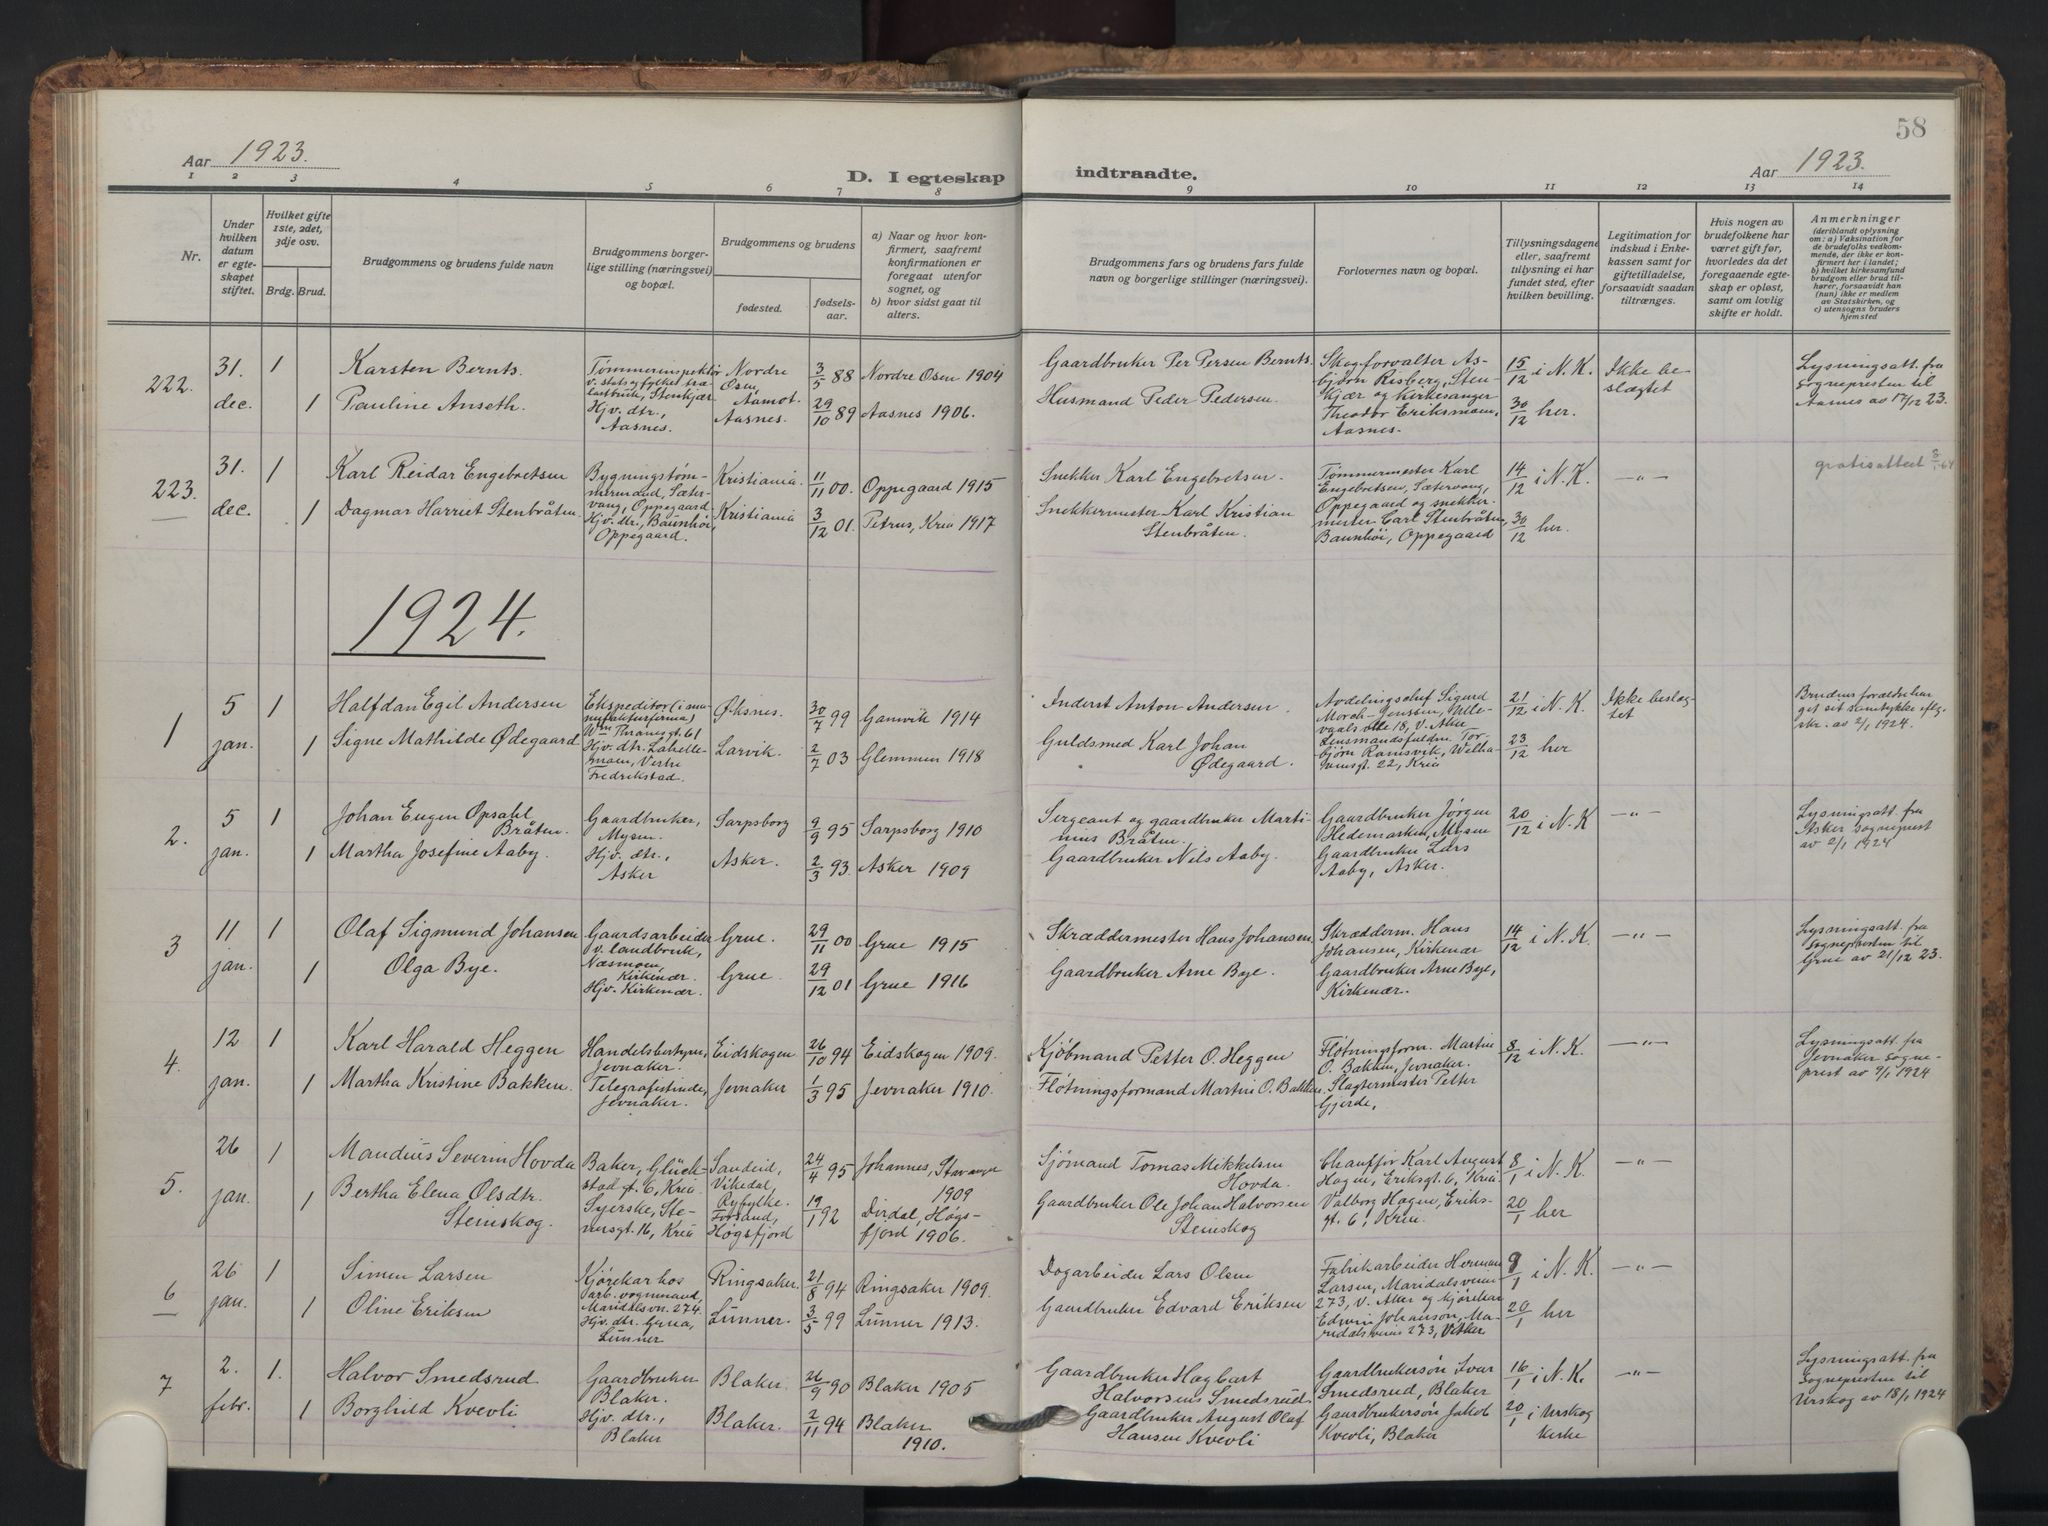 58
Aar 1923.
D. I egteskap
indtraadte.
Aar 1923.
1 2 3 4 5 6 7 8 9 10 11 12 13 14
Nr.
Under hvilken datum er egte-skapet stiftet.
Hvilket gifte 1ste, 2det, 3dje osv.
Brdg. Brud.
Brudgommens og brudens fulde navn
Brudgommens borger-lige stilling (næringsvei) og bopæl.
Brudgommens og brudens
fødested.
fødsels-aar.
a) Naar og hvor kon-firmert, saafremt konfirmationen er foregaat utenfor sognet, og
b) hvor sidst gaat til alters.
Brudgommens fars og brudens fars fulde navn og borgerlige stillinger (næringsvei).
Forlovernes navn og bopæl.
Tillysningsdagene eller, saafremt tillysning ei har fundet sted, efter hvilken bevilling.
Legitimation for indskud i Enke-kassen samt for giftetilladelse, forsaavidt saadan tiltrænges.
Hvis nogen av brudefolkene har været gift før, hvorledes da det foregaaende egte-skap er opløst, samt om lovlig skifte er holdt.
Anmerkninger (deriblandt oplysning om: a) Vaksination for de brudefolks vedkom-mende, der ikke er kon-firmert her i landet; b) hvilket kirkesamfund brudgom eller brud til-hører, forsaavidt han (hun) ikke er medlem av Statskirken, og c) utensogns bruders hjemsted
222. 31. dec. 1 Karsten Bernts. Tømmerinspektør v. stats og fylket træ-lastbruk, Stenkjær. Nordre Osen, Aamot. 3/5 88 Nordre Osen 1904 Gaardbruker Per Persen Bernts. Skogforvalter As-bjørn Risberg, Sten-kjær og kirkesanger Theodor Eriksmoen, Aasnes. 15/12 i N. K. Ikke be-slægtet Lysningsatt. fra Sognepresten til Aasnes av 17/12 23.
1 Pauline Anseth. Hjv. dtr., Aasnes. Aasnes. 29/10 89 Aasnes 1906. Husmand Peder Pedersen. 30/12 her.
223. 31. dec. 1 Karl Reidar Engebretsen Bygningstøm-mermand, Sæter-vang, Oppegaard Kristiania. 11/11 00. Oppegaard 1915 Snekker Karl Engebretsen. Tømmermester Karl Engebretsen, Sætervang, Oppegaard og snekker-mester Carl Stenbråten, Baunhöi, Oppegaard 14/12 i N. K. —"— gratisattest
1 Dagmar Harriet Stenbråten. Hjv. dtr., Baunhöi, Oppegaard. Kristiania 3/12 01. Petrus, Kria 1917 Snekkermester Karl Kristian Stenbråten. 30/12 her.
1924.
1 5 jan. 1 Halfdan Egil Andersen Ekspeditør (i ma-nufakturfirma) Wm Thranesgt. 61 Øksnes. 30/7 99 Gamvik 1914 Inderst Anton Andersen. Avdelingschef Sigurd Morch-Jenssen, Ulle-vaals allé 18, V. Aker Lensmandsfuldm. Tor-bjørn Ramsvik, Welha-vensgt. 22, Kria 21/12 i N. K. Ikke beslæg-tet Brudens forældre har get sit samtykke eflg. skr. av 2/1 1924.
1 Signe Mathilde Ødegaard Hjv. dtr. Labelle-moen, Vestre Fredrikstad. Larvik. 2/7 03 Glemmen 1918 Guldsmed Karl Johan Ødegaard. 23/12 her
2. 5 jan. 1 Johan Eugen Opsahl Bråten. Gaardbruker, Mysen. Sarpsborg 9/9 95 Sarpsborg 1910 Sergeant og gaardbruker Marti-nius Bråten. Gaardbruker Jørgen Hedemarken, Mysen Gaardbruker Lars Aaby, Asker. 20/12 i N. K —"— Lysningsatt. fra Asker sogneprest av 2/1 1924
1 Martha Josefine Aaby. Hjv. dtr., Asker Asker. 2/3 93. Asker 1909 Gaardbruker Nils Aaby.
3 11 jan. 1 Olaf Sigmund Johansen Gaardsarbeider v. landbruk, Næsmoen, Kirkenær. Grue. 29/11 00 Grue 1915 Skræddermester Hans Johansen. Skrædderm. Hans Johansen, Kirkenær Gaardbruker Arne Bye, Kirkenær. 14/12 i N. K. —"— Lysningsatt. fra Sognepresten til Grue av 21/12 23.
1 Olga Bye. Hjv. Kirkenær. Grue. 29/12 01 Grue 1916 Gaardbruker Arne Bye.
4. 12 jan. 1 Karl Harald Heggen Handelsbestyrer, Jevnaker. Eidskogen 26/10 94 Eidskogen 1909. Kjöbmand Petter O. Heggen Fløtningsform. Martin O. Bakken, Jevnaker. Slagtermester Petter Gjerde, 8/12 i N. K. —"— Lysningsatt. fra Jevnaker sogne-prest av 9/1 1924
1 Martha Kristine Bakken. Telegrafistinde, Jevnaker. Jevnaker 1/3 95 Jevnaker 1910. Fløtningsformand Martin O. Bakken.
5. 26 jan. 1 Maudius Severin Hovda Baker, Glück-stad gt. 6, Kria. Sandeid, Vikedal, Ryfylke. 24/4 95 Johannes, Stavanger 1909 Sjømand Tomas Mikkelsen Hovda. Chauffør Karl August Hagen, Eriksgt. 6, Kria. Valborg Hagen, Eriks-gt. 6, Kria. 8/1 i N. K. —"—
1 Bertha Elena Olsdtr. Steinskog. Syerske, Ste-nersgt. 16, Kria Forsand, Høgsfjord 19/1 92 Dirdal, Høgs-fjord 1906. Gaardbruker Ole Johan Halvorsen Steinskog 20/1 her
6 26 jan. 1 Simen Larsen Kjørekar hos arb. vognmand, Maridalsvn. 274. Ringsaker. 21/8 94 Ringsaker 1909. Dagarbeider Lars Olsen Fabrikarbeider Herman Larsen, Maridalsveien 273, V. Aker og kjørekar Edwin Johanson, Ma-ridalsveien 273, V. Aker 9/1 i N. K. —"—
1 Oline Eriksen Hjv. dtr. Grua, Lunner Lunner. 3/5 99 Lunner 1913. Gaardbruker Edvard Eriksen 20/1 her
7 2. febr. 1. Halvor Smedsrud Gaardbruker Blaker. Blaker. 26/9 90 Blaker 1905 Gaardbruker Hagbart Halvorsens Smedsrud Gaardbrukersøn Ivar Smedsrud, Blaker 16/1 i N. K. —"— Lysningsatt. fra Sognepresten til Urskog av 18/1 1924
1 Borghild Kvevli Hjv. dtr., Blaker Blaker. 2/11 94 Blaker 1910. Gaardbruker August Olaf Hansen Kvevli Gaardbrukersøn Jakob Kvevli, Blaker 20/1 i Urskog kirke